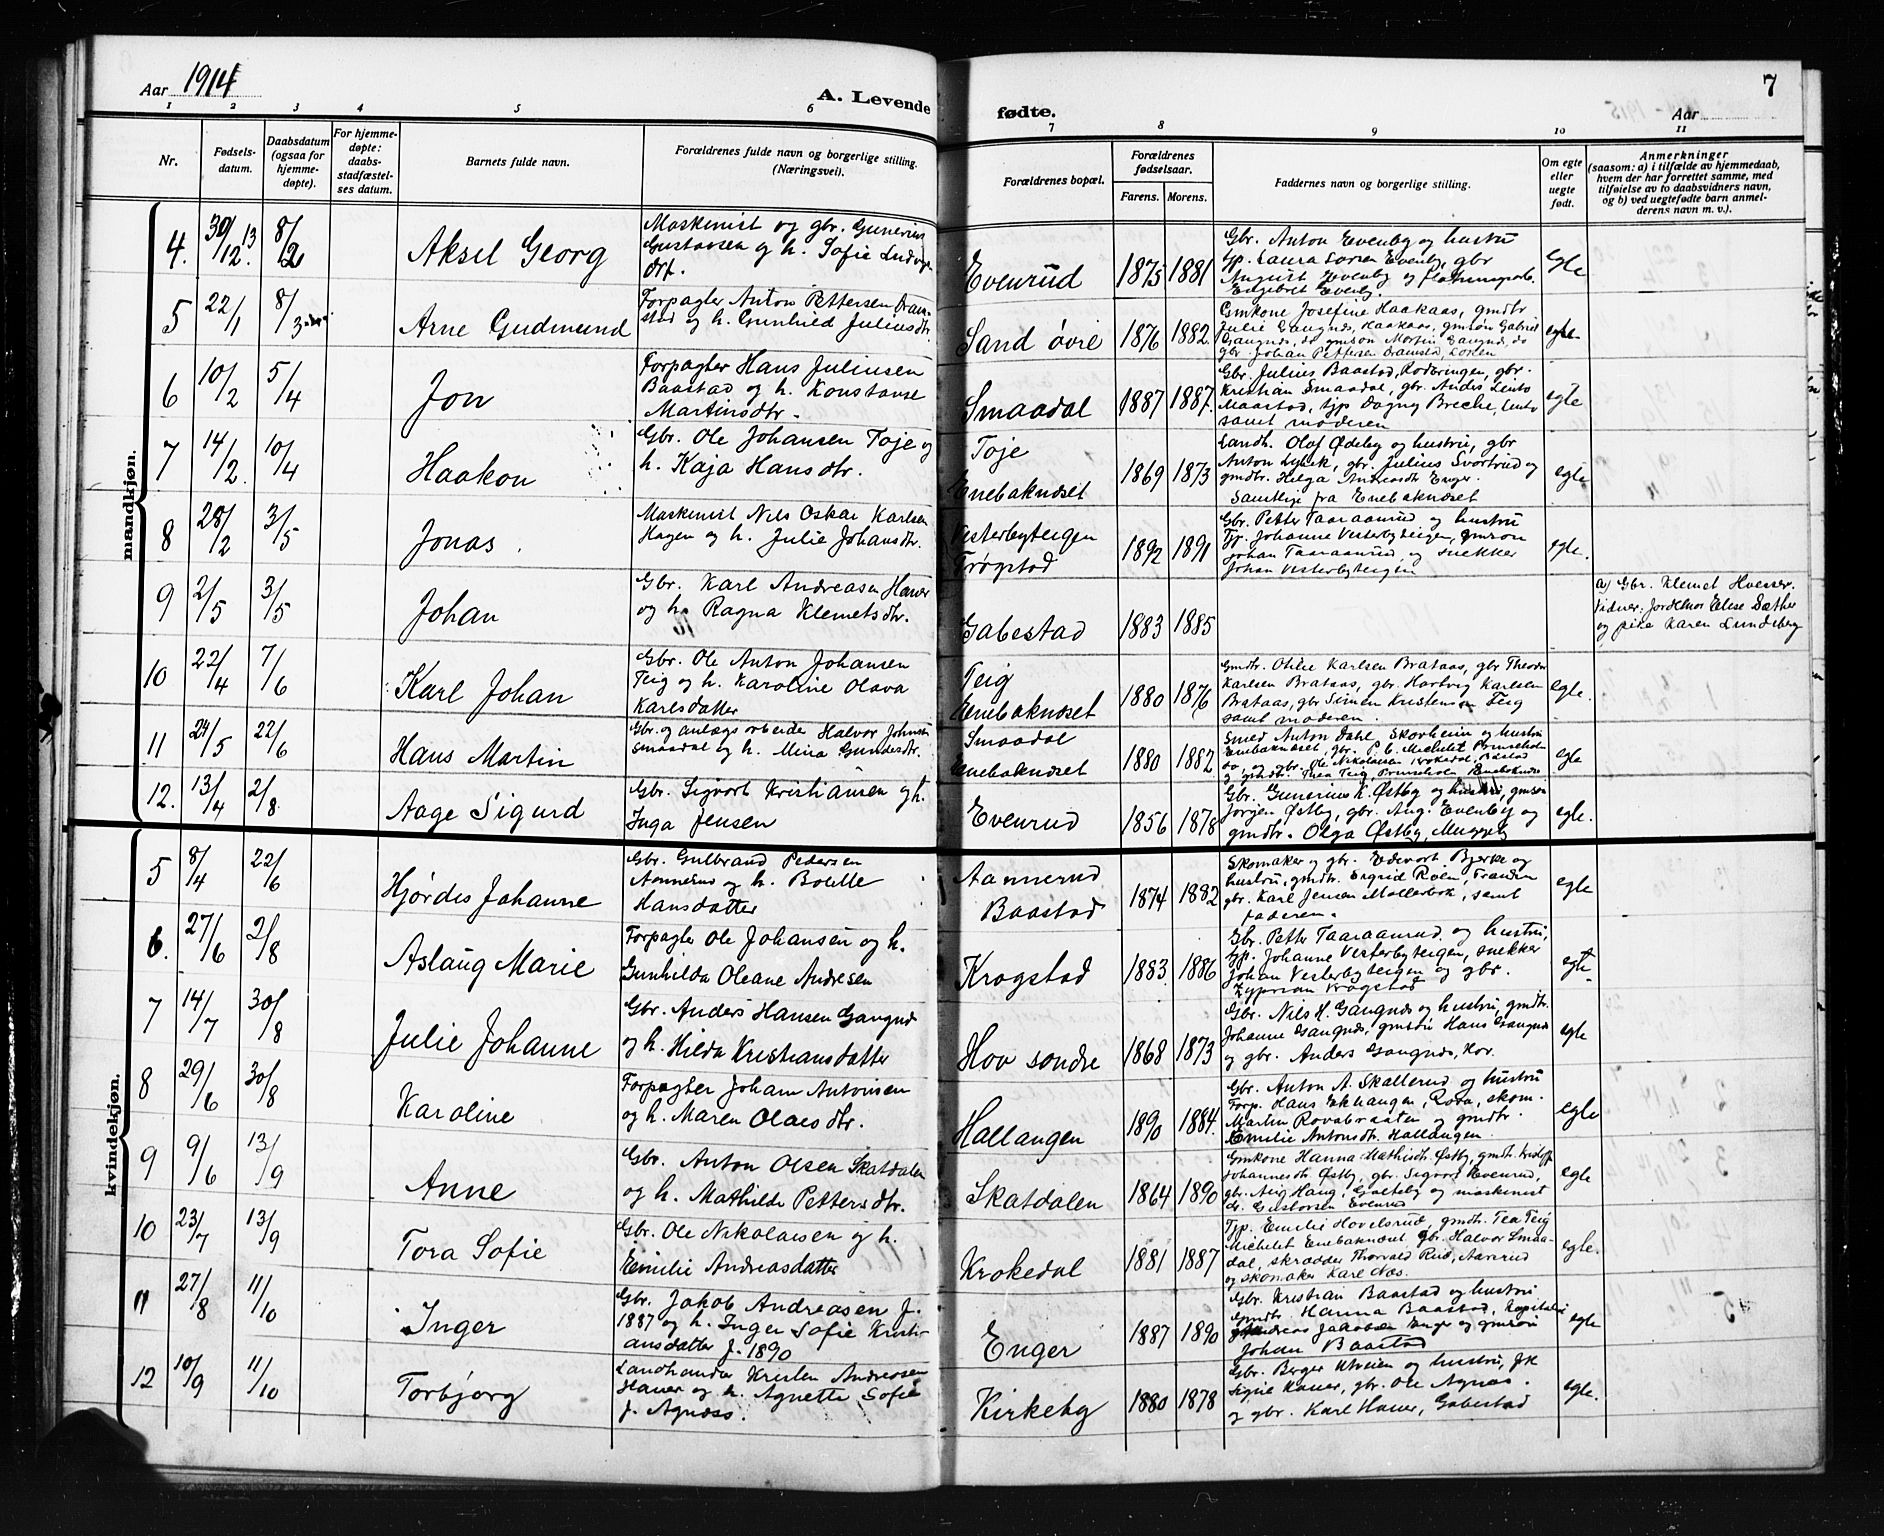 Aar 1914
A. Levende
fødte.
7
Aar
1 2 3 4 5 6 7 8 9 10 11
Nr.
Fødsels-
datum.
Daabsdatum
(ogsaa for
hjemme-
døpte).
For hjemme-
døpte:
daabs-
stadfæstel-
ses datum.
Barnets fulde navn.
Forældrenes fulde navn og borgerlige stilling.
(Næringsvei).
Forældrenes bopæl.
Forældrenes
fødselsaar.
Farens. Morens.
Faddernes navn og borgerlige stilling.
Om egte
eller
uegte
født.
Anmerkninger
(saasom: a) i tilfælde av hjemmedaab,
hvem der har forrettet samme, med
tilføielse av to daabsvidners navn,
og b) ved uegtefødte barn anmel-
derens navn m. v.).
maandkjøn.
4. 30/12 13 8/2 Aksel Georg
Maskinist og gbr. Gunerius
Gustavsen og h. Sofie Ludvigs
dtr.
Evenrud 1875 1881
Gbr. Anton Evenby og hustru
tjp. Laura Loren Evenby, gbr
August Evenby og
Engebret Evenby.
Egte
5 22/1 8/3 Arne Gudmund
Forpagter Anton Pettersen Bram-
stad og h. Gunhild Juliusdtr.
Sand øvre 1876 1882.
Gmkone Josefine Haakaas, gmdtr
Julie Gangnæs, Haakaas, gmsøn Gabriel
Gangnæs, do gmsøn Martin Gangnæs, do
gbr. Johan Pettersen Bramstad, Loren
egte
6 10/2 5/4 Jon
Forpagter Hans Juliussen
Baastad og h. Konstanse
Martinsdtr.
Smaadal 1887 1887.
Gbr. Julius Baastad, Nordbringen, gbr.
Kristian Smaadal, gbr. Anders Linto
Maastad, tjp Dagny Breche, Linto
samt moderen
egte
7 14/2 10/4 Haakon
Gbr. Ole Johansen Toje og
h. Kaja Hansdtr.
Toje
Enebaknæset 1869 1873
Landh. Olaf Ødeby og hustru, gbr
Anton Lybek, gbr. Julius Svartrud og
gmdtr. Helga Andreasdtr Enger.
Samtlige fra Enebaknæset
egte
8 28/2 3/5 Jonas
Maskinist Nils Oskar Karlsen
Hagen og h. Julie Johansdtr.
Vesterbyteigen
Trøgstad 1892 1891
Gbr. Petter Taaraanrud og hustru
Tjp. Johanne Vesterbyteigen, gmsøn
Johan Taaraanrud og snekker
Johan Vesterbyteigen
egte.
9 2/5 3/5 Johan
Gbr. Karl Andreasen Hauer
og h. Ragna Klemetsdtr.
Gabestad 1883 1885
a) Gbr. Klemet Hueser.
Vidner: Jordmor Elise Sæther
og pike Karen Lundeberg
10 22/4 7/6 Karl Johan
Gbr. Ole Anton Johansen
Teig og h. Karoline Olava
Karlsdatter
Teig
Enebaknæset 1880 1876
Gmdtr. Otilie Karlsen Brataas, gbr Theodor
Karlsen Brataas, gbr. Hartvig Karlsen
Brataas, gbr Simen Kristensen Teig
samt moderen.
egte.
11 24/5 22/6 Hans Martin
Gbr. og anlægsarbeider Halvor Johnsen
Smaadal og h. Mina Gundersdtr.
Smaadal
Enebaknæset 1880 1882
Smed Anton Dahl, Skovheim og hustru
Enebaknæset, gbr. P. C. Michelet Prunsholen
do, og gbr. Ole Nikolaisen Krokedal, Baastad
og gmdtr. Thea Teig, Prunsholen, Enebaknæs
egte
12. 13/4 2/8. Aage Sigurd
Gbr. Sigvart Kristiansen og h.
Inga Jensen
Evenrud 1856 1878
Gbr. Gunerius K. Østby og hustru, gmsøn
Jørgen Østby, gbr. Aug. Evenby og
gmdtr. Olga Østby, Muggeby
egte.
kvindekjøn.
5 8/4 22/6 Hjørdis Johanne
Gbr. Gulbrand Pedersen
Aannerud og h. Bolette
Hansdatter
Aannerud
Baastad 1874 1882
Skomaker og gbr. Edevart Bjerke og
hustru, gmdtr. Sigrid Roen, Trandem
gbr. Karl Jensen Møllerbok, samt
faderen.
egte
6. 27/6 2/8 Aslaug Marie
Forpagter Ole Johansen og h.
Gunhilda Oleane Andresen
Krogstad 1883. 1886
Gbr. Petter Taaraanrud og hustru,
tjp. Johanne Vesterbyteigen, snekker
Johan Vesterbyteigen og gbr.
Zyprian Krogstad
egte
7 14/7 30/8 Julie Johanne
Gbr. Anders Hansen Gangnæs
og h. Hilda Kristiansdatter
Hov søndre 1868 1873
Gbr. Nils H. Gangnæs og hustru, gmdtr.
Johanne Gangnæs, gmsøn Hans Gangnæs
og gbr. Anders Gangnæs, Hov.
egte
8 29/6 30/8 Karoline
Forpagter Johan Antonsen
og h. Maren Olaesdtr.
Hallangen 1890 1884.
Gbr. Anton A. Skallerud og hustru
Forp. Hans Ekhaugen, Rova, skom.
Martin Rovabraaten og gmdtr.
Emilie Antonsdtr. Hallangen.
egte
9 9/6 13/9 Anne
Gbr. Anton Olsen Skatdalen
og h. Mathilde Pettersdtr.
Skatdalen 1864 1890
Gmkone Hanna Mathisdtr. Østby, gmdtr. Kristoffa
Johannesdtr Østby, gbr. Sigvart Evenrud,
gbr. Aug Haug, Galteby og maskinist
G. Gustavsen Evenrud
egte
10 23/7 13/9 Tora Sofie
Gbr. Ole Nikolaisen og h.
Emilie Andreasdatter
Krokedal 1881 1887
Tjp. Emilie Hovelsrud, gmdtr. Tea Teig
Michelet Enebaknæset gbr. Halvor Smaa-
dal, skrædder Thorvald Rud, Aarerud
og skomaker Karl Næs.
egte.
11 27/8 11/10 Inger
Gbr. Jakob Andreasen f.
1887 og h. Inger Sofie Kristi-
ansdatter f. 1890
Enger 1887 1890
Gbr. Kristian Baastad og hustru
Gmdtr Hanna Baastad, Kapitalei
Andreas Jakobsen Enger og gmsøn
Johan Baastad
egte
12 10/9 11/10 Torbjørg
Landhandler Kristen Andreasen
Hauer og h. Agnette Sofie
f. Agnæss.
Kirkeby 1880 1878
Gbr. Berger Utveien og hustru, frk
Signe Hauer, gbr. Ole Agnæs.
og gbr. Karl Hauer, Gabestad
egte.